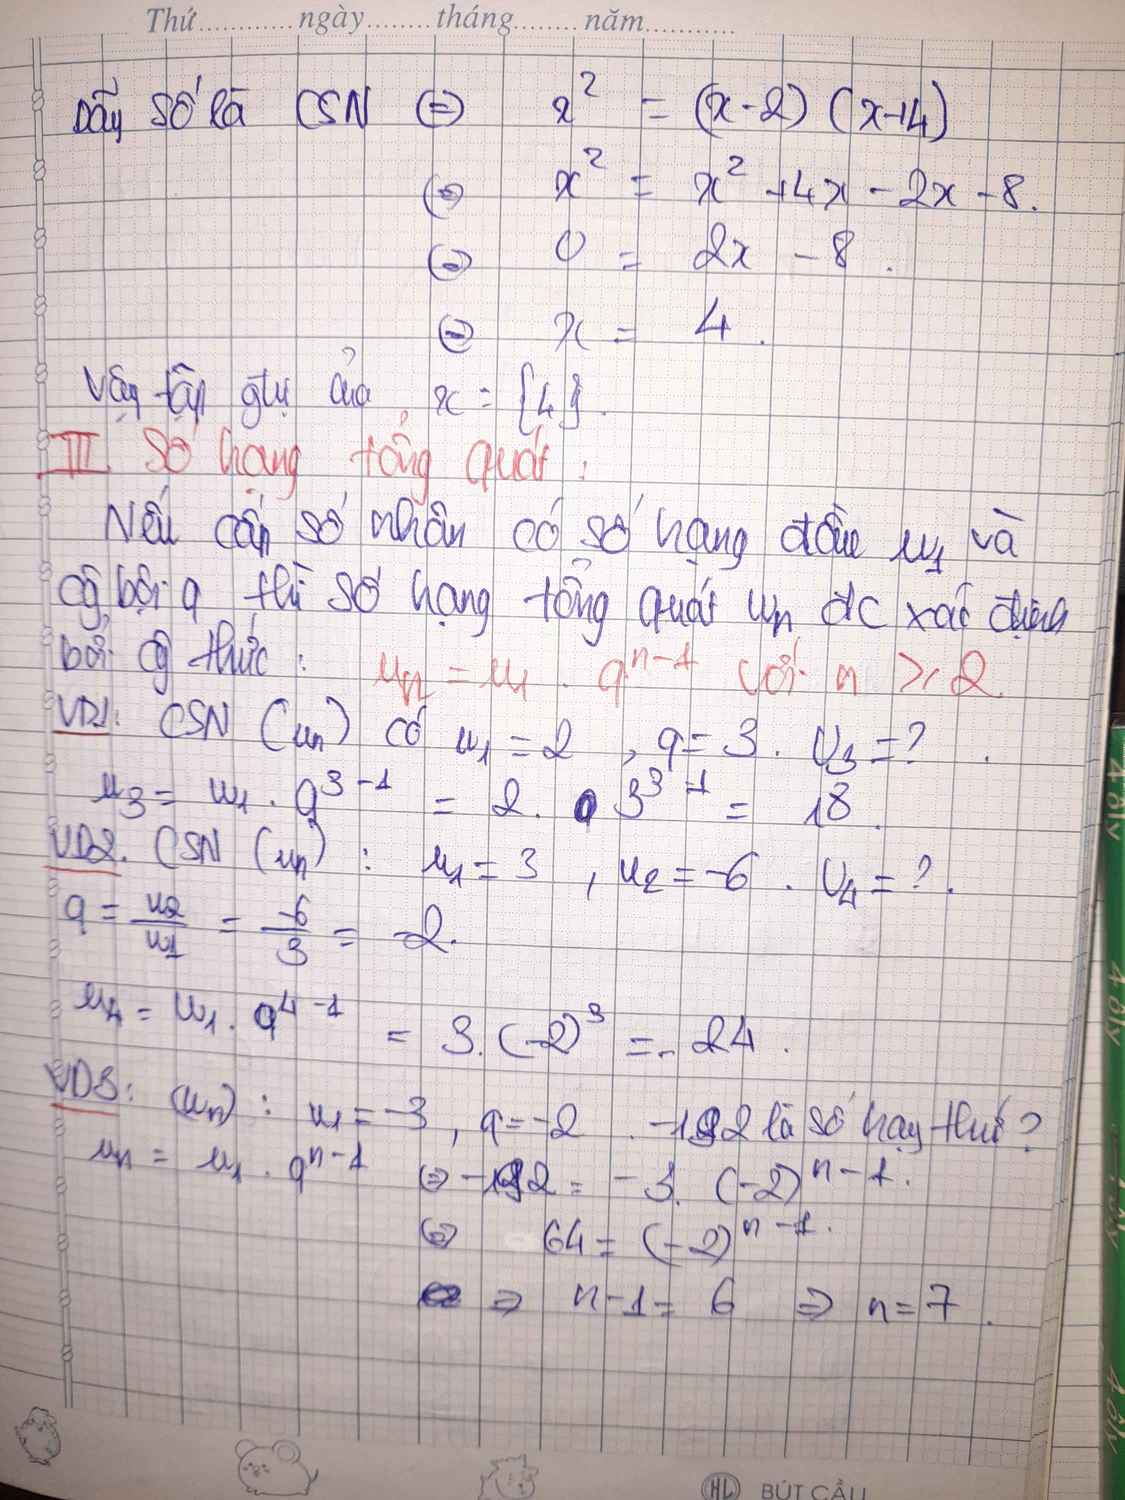 Thứ............ngày........tháng........năm...........
Dãy số là CSN ⇔ x² = (x-2)(x+4)
⇔ x² = x² +4x - 2x - 8.
⇔ 0 = 2x - 8.
⇔ x = 4.
Vậy tập gtrị của x = {4}.
III Số hạng tổng quát:
Nếu cấp số nhân có số hạng đầu u₁ và
cg bội q thì số hạng tổng quát uₙ đc xác định
bởi cg thức: uₙ = u₁ . qⁿ⁻¹ với n ≥ 2
VD1: CSN (uₙ) có u₁ = 2 , q = 3. U₃ = ? .
u₃ = u₁ . q³⁻¹ = 2. 3³⁻¹ = 18.
VD2. CSN (uₙ) : u₁ = 3 , u₂ = -6 . U₄ = ? .
q = u₂/u₁ = -6/3 = -2.
u₄ = u₁ . q⁴⁻¹ = 3. (-2)³ = -24 .
VD3: (uₙ) : u₁ = -3 , q = -2 . -192 là số hạng thứ ?
uₙ = u₁ . qⁿ⁻¹ ⇔ -192 = -3. (-2)ⁿ⁻¹.
⇔ 64 = (-2)ⁿ⁻¹.
⇒ n-1 = 6 ⇒ n = 7 .
HL BÚT CẦU
4 ôly
4 ôly
4 ôly